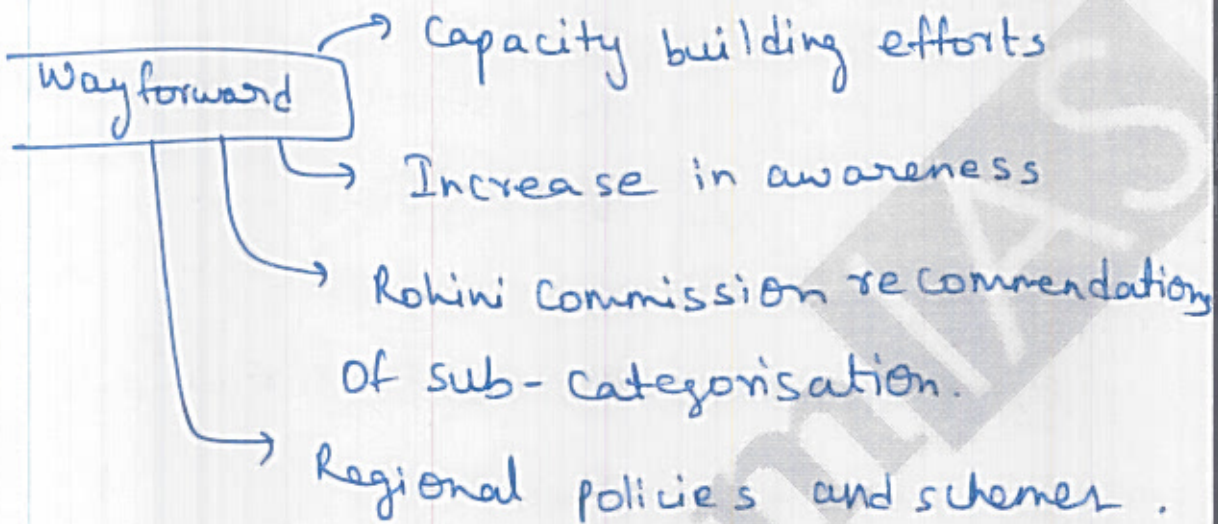 Wayforward
Capacity building efforts
Increase in awareness
Rohini Commission recommendations
of sub-categorisation.
Regional policies and schemes.
IAS